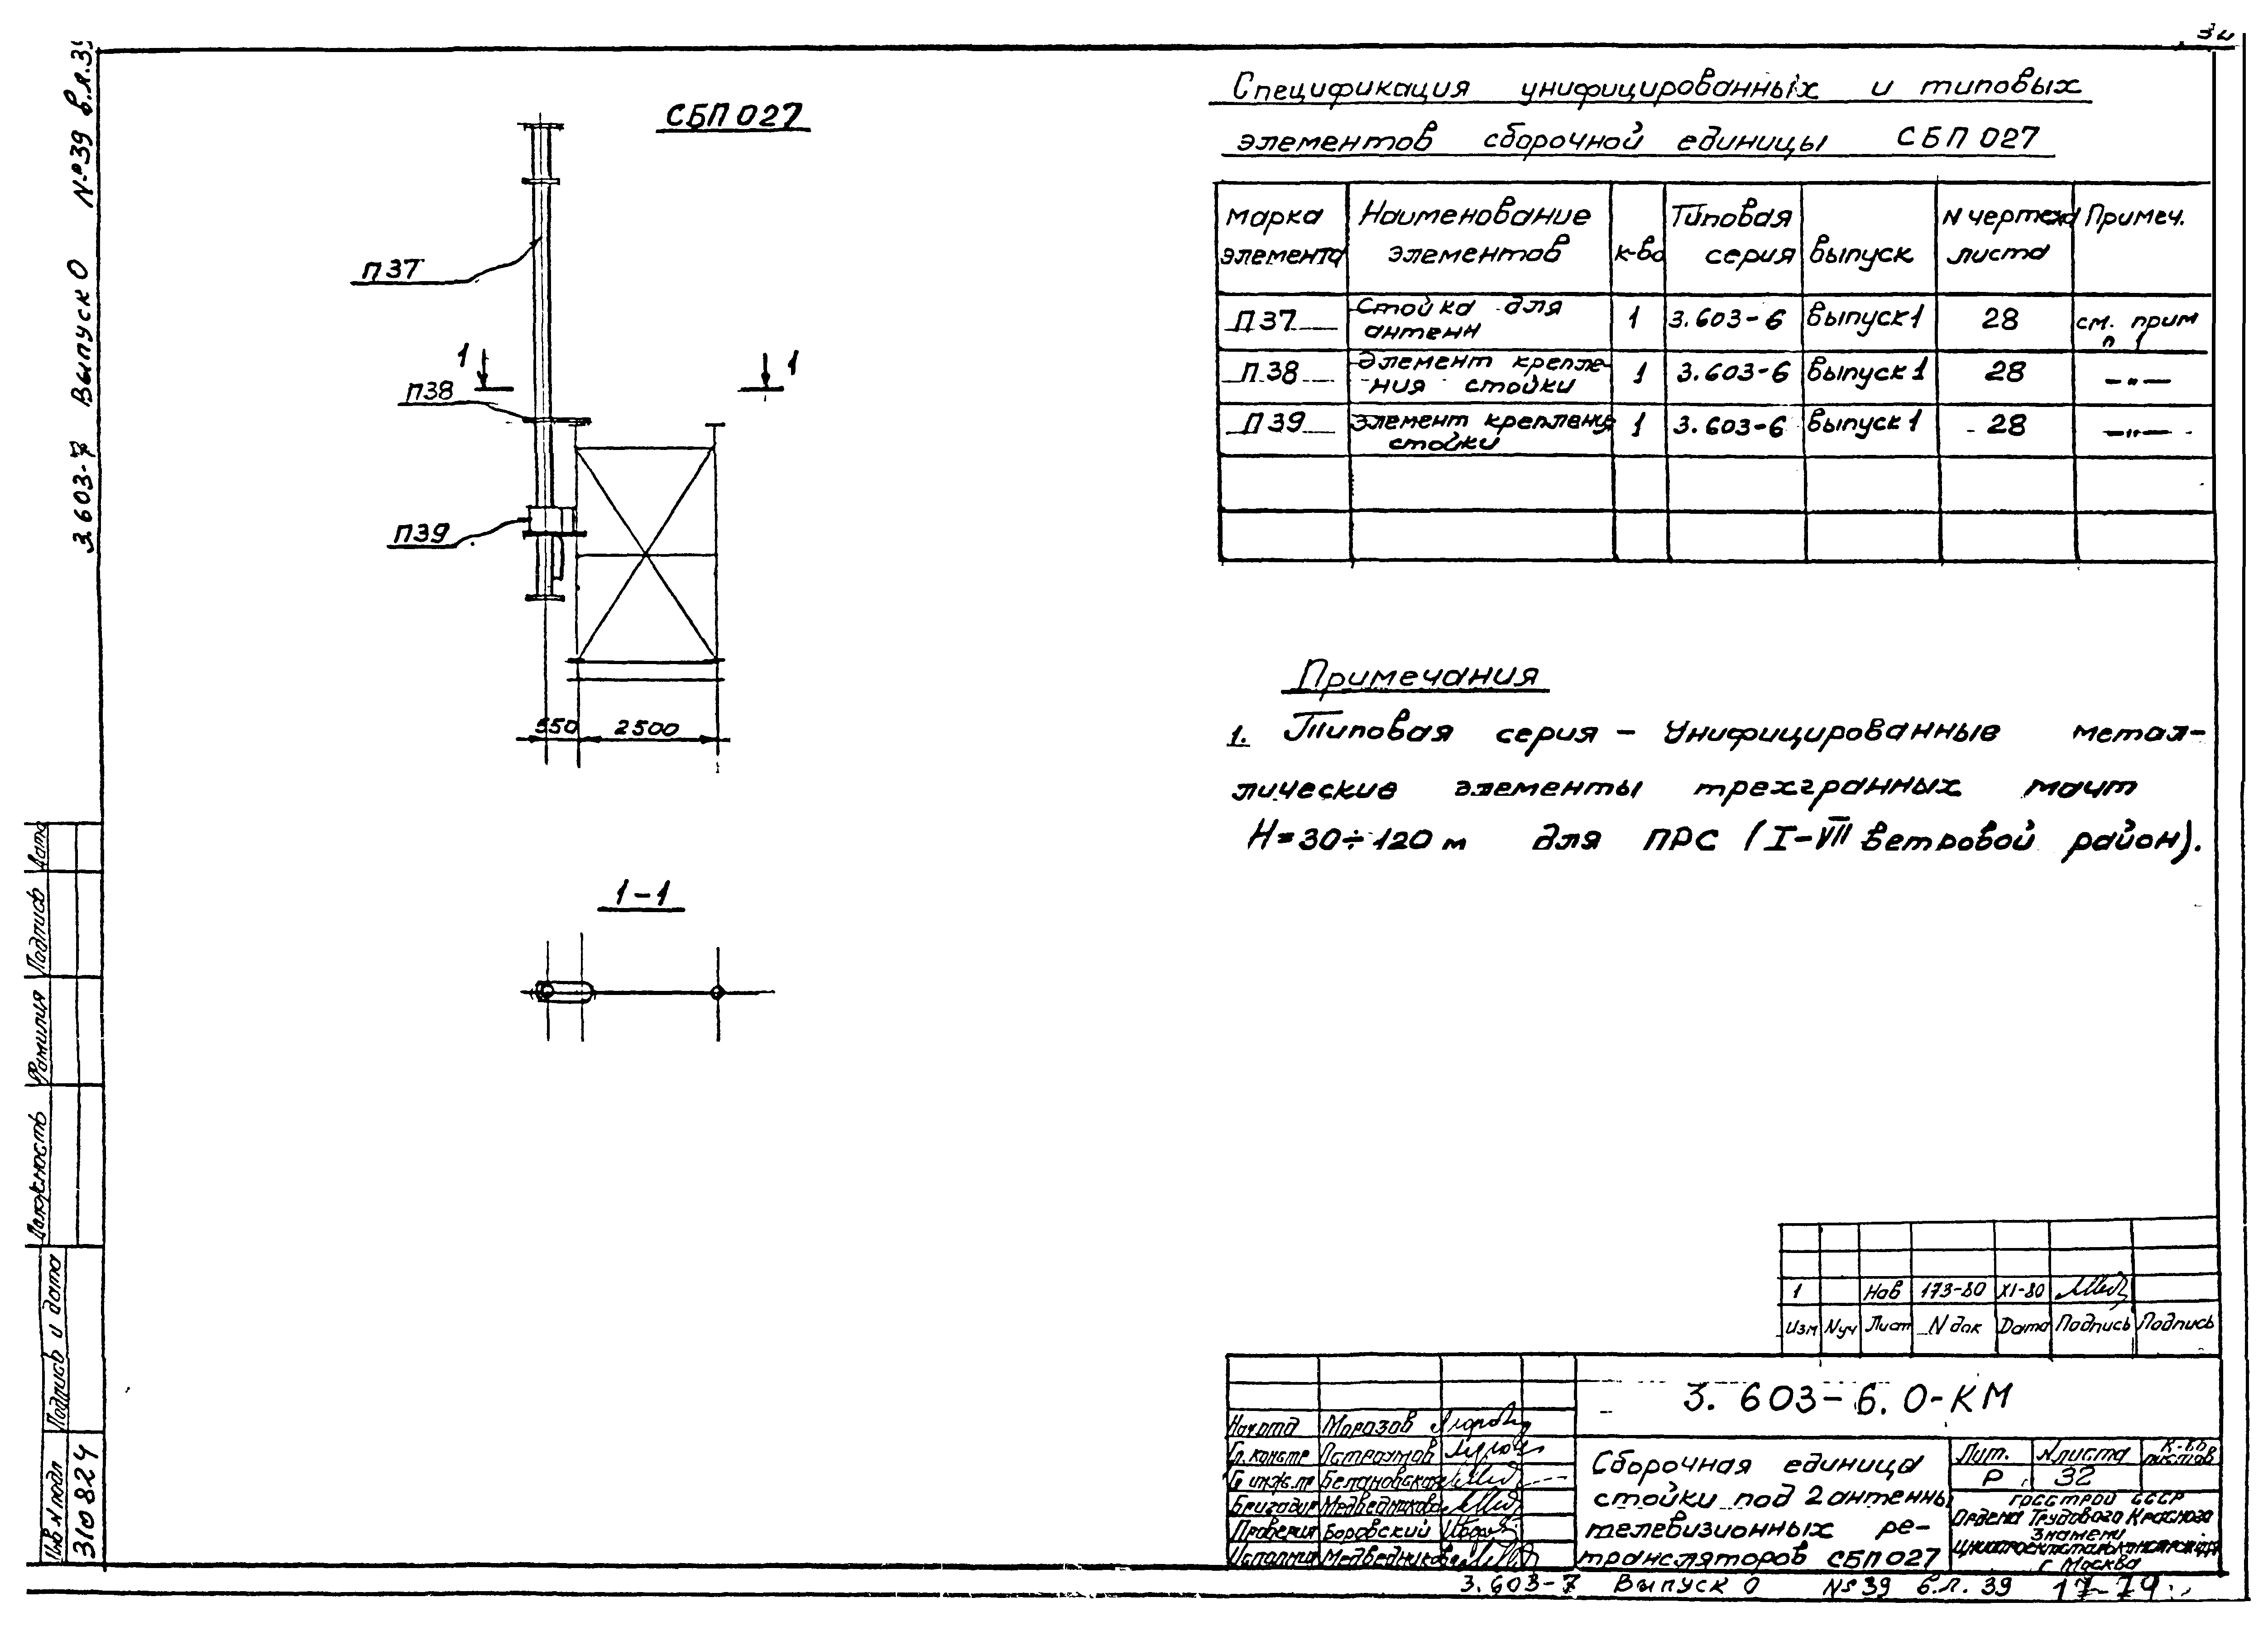 3.603-7 Выпуск 0 №39 в.л.39
СБП 027
П37
1
1
П38
П39
550 2500
1-1
Спецификация унифицированных и типовых
элементов сборочной единицы СБП 027
марка элемента Наименование элементов к-во Типовая серия выпуск N чертежа листа Примеч.
П37 Стойка для антенн 1 3.603-6 выпуск 1 28 см. прим п 1
П38 Элемент крепле- ния стойки 1 3.603-6 выпуск 1 28 —"—
П39 элемент крепления стойки 1 3.603-6 выпуск 1 28 —"—
Примечания
1. Типовая серия – Унифицированные метал-
лические элементы трехгранных мачт
Н=30÷120 м для ПРС (I-VII ветровой район).
1 Нов 173-80 XI-80
Изм Nуч Лист N док Дата Подпись Подпись
3. 603-6. 0-КМ
Нач.отд Морозов
Гл. констр Остроумов
Гл инж.пр Белановская
Бригадир Медведникова
Проверил Боровский
Исполнил Медведникова
Сборочная единица
стойки под 2 антенны
телевизионных ре-
трансляторов СБП 027
Лит. N листа К-во листов
Р 32
ГОССТРОЙ СССР
Ордена Трудового Красного
Знамени
ЦНИИпроектстальконструкция
г Москва
3.603-7 Выпуск 0 №39 в.л. 39 17-79
Должность Фамилия Подпись Дата
Инв N подл Подпись и дата
310824